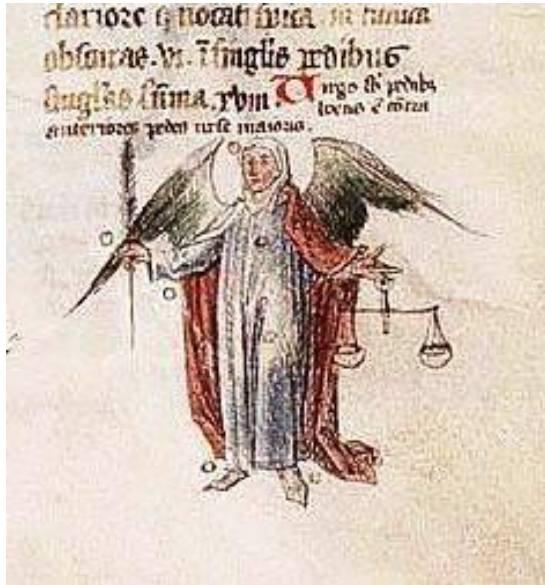 clariore q uocat spica. in tunica
obscuras. vi. i singlis pedibus
singlas sūma. xviii Uirgo sb pedibꝫ
locus ē cōtra
anteriores pedes urse maioris.